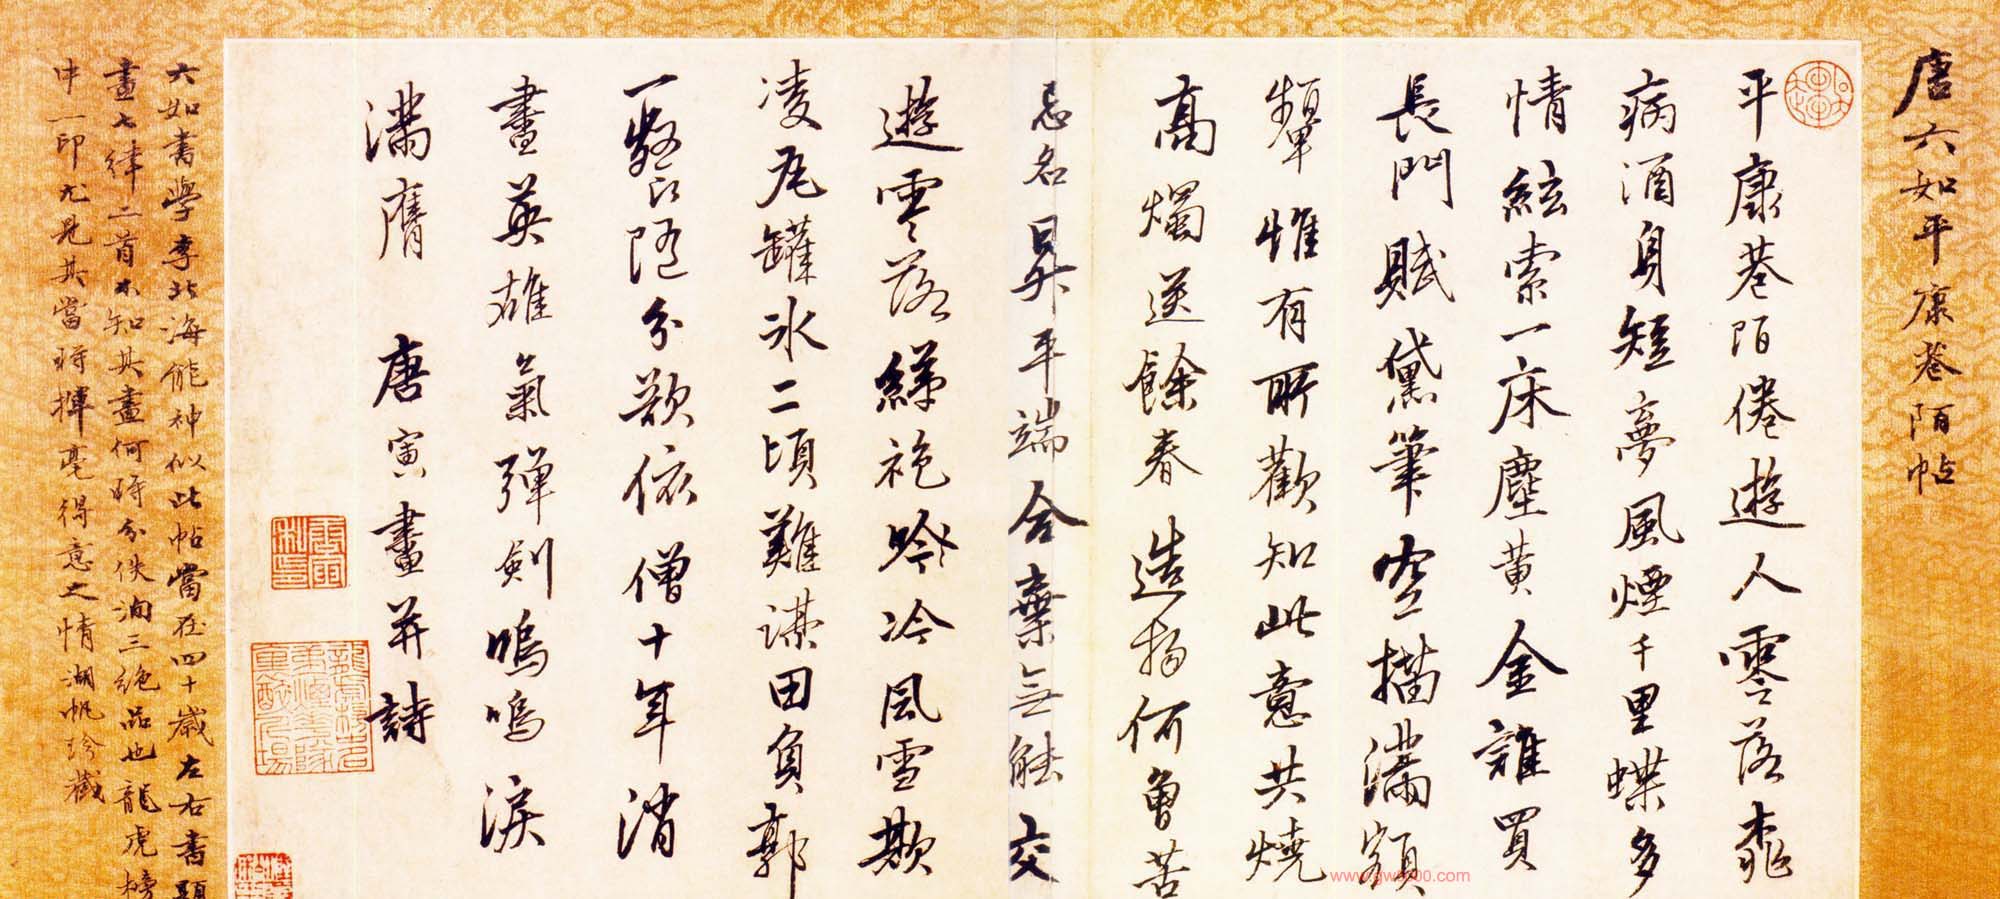 唐六如平康巷陌帖
平康巷陌倦遊人零落桃
病酒身短夢風煙千里蝶多
情絃索一床塵黃金誰買
長門賦黛筆空描滿額
顰惟有所歡知此意共燒
高燭送餘春造物何曾苦
忌名昇平端合棄無能交
遊零落綈袍吟冷風雪欺
凌瓦罐冰二頃難謀田負郭
一餐隨分欲依僧十年消
盡英雄氣彈劍嗚嗚淚
滿膺 唐寅畫并詩
六如書學李北海能神似此帖當在四十歲左右書題
畫七律二首不知其畫何時分佚洵三絕品也龍虎榜
中一印尤見其當時揮毫得意之情湖帆珍藏